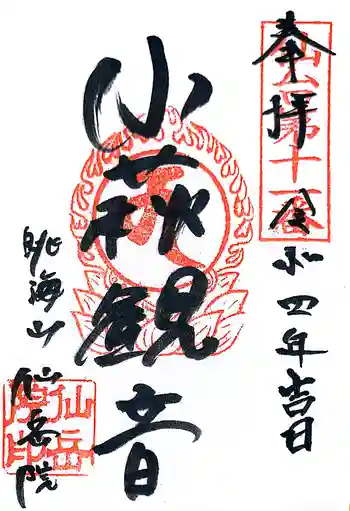 奉拝
仙台第十一番
令和四年吉日
小萩観音
眺海山
仙岳院
仙岳
院印